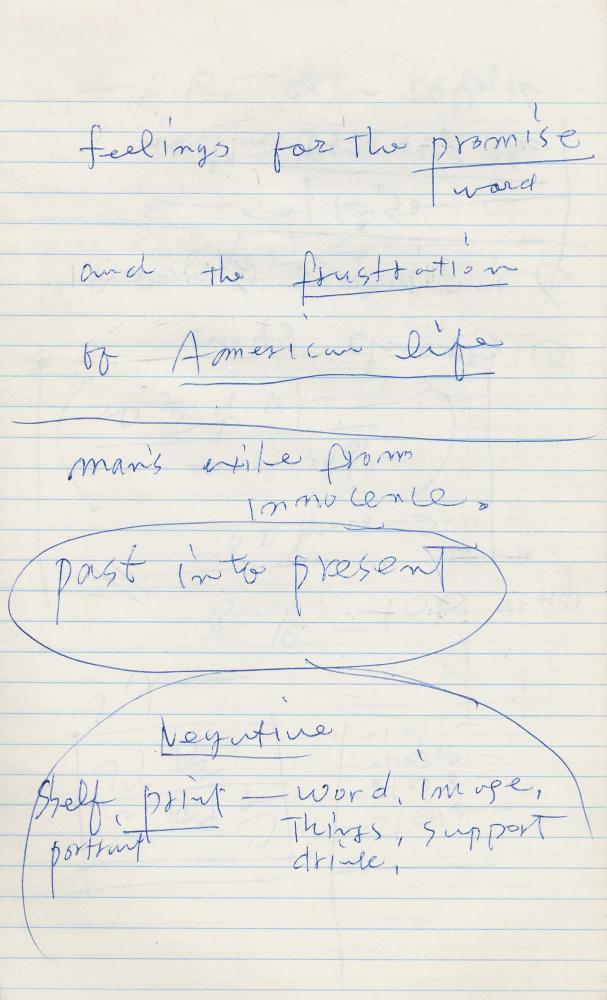 feelings for the promise
word
and the frustration
of American life
man's exile from
innocence.
past into present
Negative
Shelf, print — word, image,
portrait Things, support
drink,